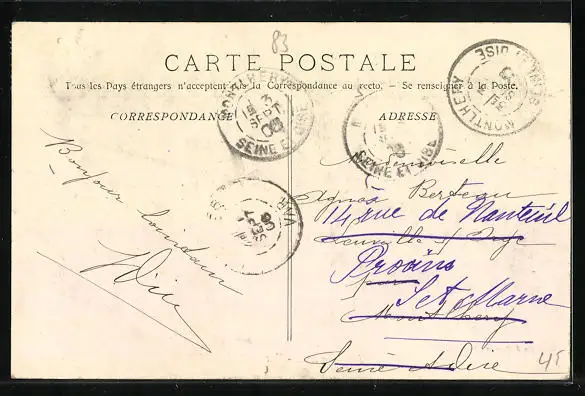 83
CARTE POSTALE
Tous les Pays étrangers n'acceptent pas la Correspondance au recto. – Se renseigner à la Poste.
CORRESPONDANCE
ADRESSE
MONTLHERY
3
SEPT
SEINE ET OISE
SEINE ET OISE
MONTLHERY
SEINE ET OISE
VAR
Bonjour lointain
Mademoiselle
Agnès Berteau
14, rue de Nanteuil
Provins
par
Set Marne
Montlhery
Seine & Oise
45